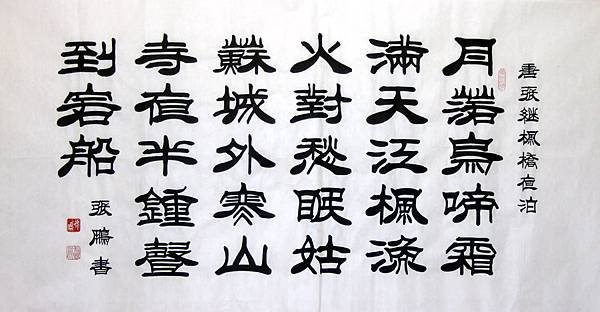 唐張継楓橋夜泊
月落烏啼霜
滿天江楓漁
火對愁眠姑
蘇城外寒山
寺夜半鍾聲
到客船
張鵬書